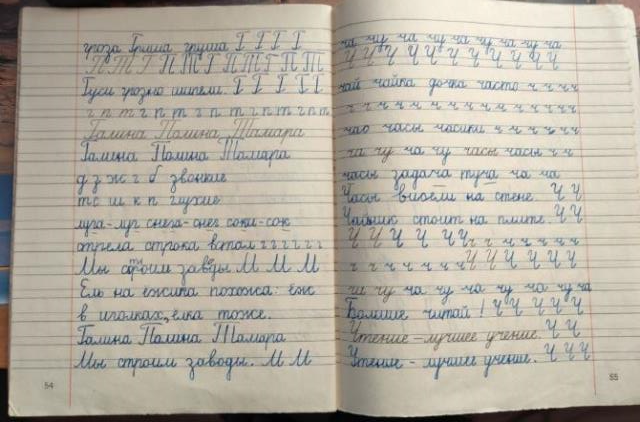 гроза Гриша груша Г Г Г Г
П Т Г П Т Г П Т Г П Т
Гуси грозно шипели. Г Г Г Г Г
г п т г п т г п т г п т г п т
Галина Полина Тамара
Галина Полина Тамара
д з ж г б звонкие
т с ш к п глухие
луга-луг снега-снег соки-сок
стрела строка встал г г г г г г
Мы строим заводы М М М
Ель на ежика похожа: еж
в иголках, елка тоже.
Галина Полина Тамара
Мы строим заводы. М М
54
ча чу ча ча чу ча ча чу ча
Ч Ч Ч Ч Ч Ч Ч Ч Ч Ч
чай чайка дочка часто ч ч ч ч
ч ч ч ч ч ч ч ч ч ч ч ч ч ч
час часы часики ч ч ч ч ч ч
ча чу ча чу часы часы ч ч
часы задача туча ча ча
Часы висели на стене. Ч Ч
Чайник стоит на плите. Ч Ч
Ч Ч Ч Ч Ч Ч ч ч ч ч ч ч ч
ч ч ч ч ч ч ч Ч Ч Ч Ч Ч
ча чу ча чу ча чу ча чу ча
Больше читай! Ч Ч Ч Ч Ч
Чтение – лучшее учение. Ч Ч
Чтение – лучшее учение. Ч Ч Ч
55